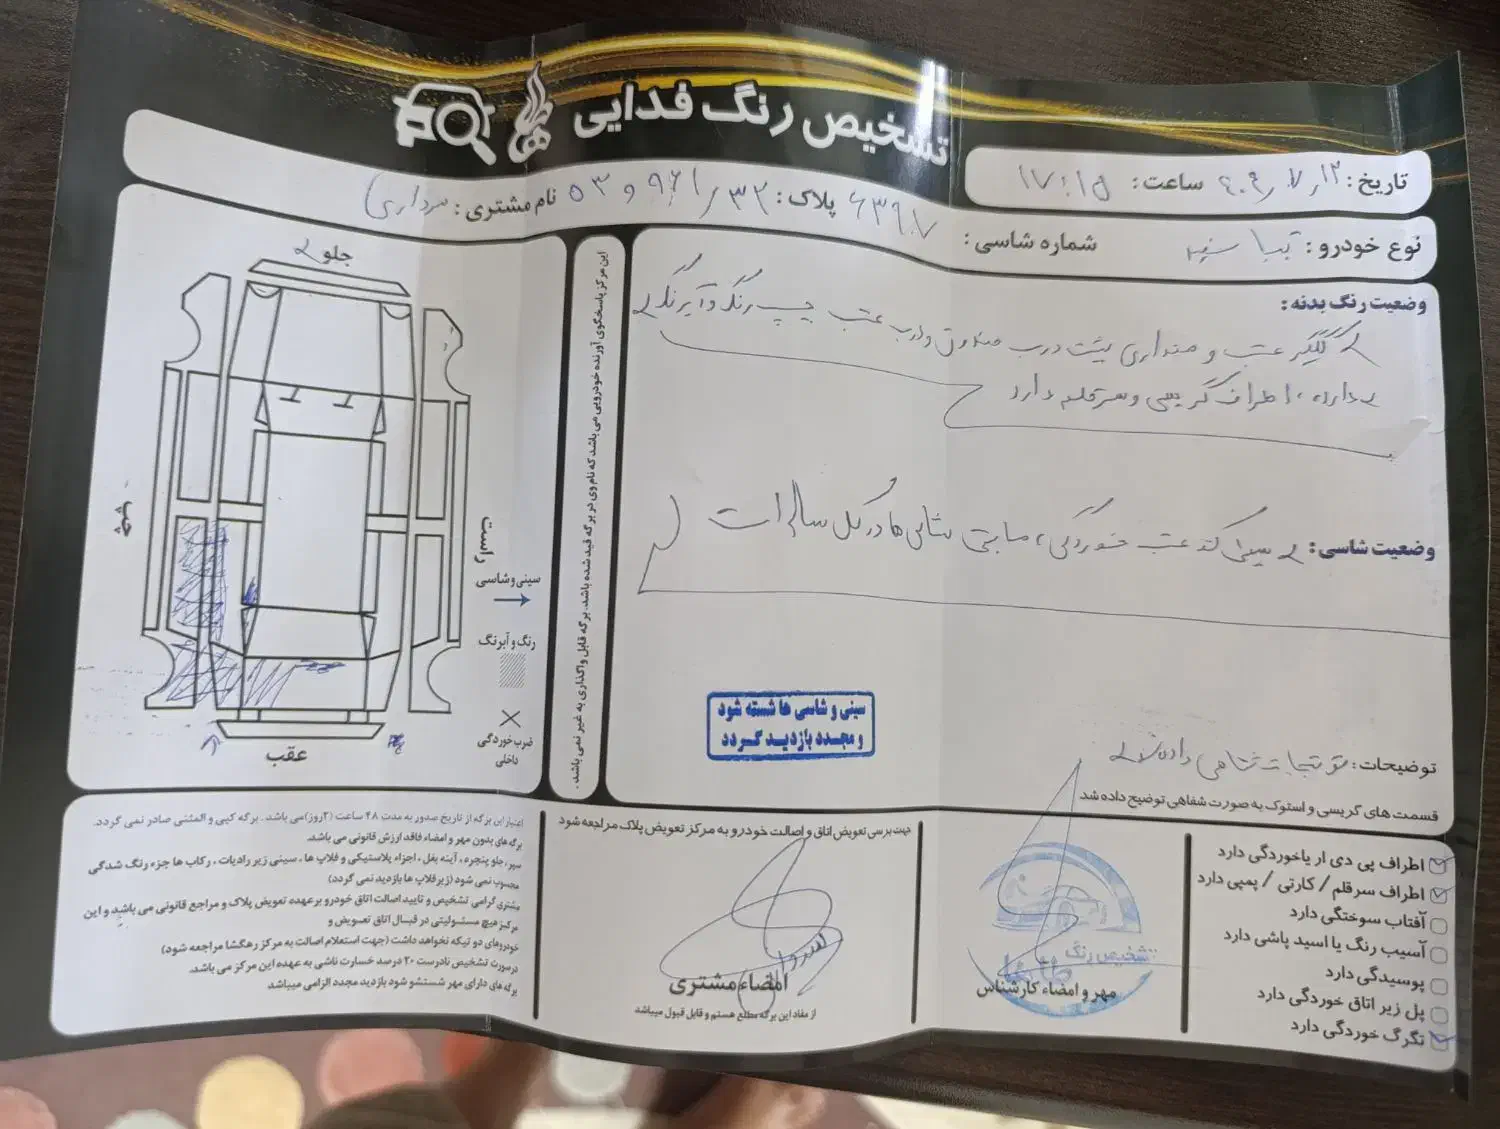 تشخیص رنگ فدایی
تاریخ: ۱۲ , ۷ , ساعت: ۱۷:۱۵
نوع خودرو: تیبا سفید شماره شاسی: ۶۳۹۰۷ پلاک: ۳۲ / ۹۶۱ و ۵۳ نام مشتری: سرداری
وضعیت رنگ بدنه:
گلگیر عقب و صندوق پشت درب صندوق و درب عقب چپ رنگ و آبرنگ
دارد، اطراف گریسی و سرقلم دارد
وضعیت شاسی: سینی کف عقب خوردگی، مابقی شاسی ها در کل سالم است
سینی و شاسی ها شسته شود
و مجدد بازدید گردد
توضیحات: توضیحات شفاهی داده شد
قسمت های گریسی و استوک به صورت شفاهی توضیح داده شد
این مرکز پاسخگوی آورنده خودرویی می باشد که نام وی در برگه قید شده باشد. برگه قابل واگذاری به غیر نمی باشد.
جلو
چپ
راست
عقب
سینی و شاسی
رنگ و آبرنگ
ضرب خوردگی
داخلی
اطراف پی دی ار یا خوردگی دارد
اطراف سرقلم / کارتی / پمپی دارد
آفتاب سوختگی دارد
آسیب رنگ یا اسید پاشی دارد
پوسیدگی دارد
پل زیر اتاق خوردگی دارد
تگرگ خوردگی دارد
تشخیص رنگ
مهر و امضاء کارشناس
جهت برسی تعویض اتاق و اصالت خودرو به مرکز تعویض پلاک مراجعه شود
امضاء مشتری
از مفاد این برگه مطلع هستم و قابل قبول میباشد
اعتبار این برگه از تاریخ صدور به مدت ۴۸ ساعت (۲روز) می باشد. برگه کپی و المثنی صادر نمی گردد.
برگه های بدون مهر و امضاء فاقد ارزش قانونی می باشد.
سپر، جلو پنجره، آینه بغل، اجزاء پلاستیکی و فلاپ ها، سینی زیر رادیات، رکاب ها جزء رنگ شدگی
محسوب نمی شود (زیر فلاپ ها بازدید نمی گردد)
مشتری گرامی تشخیص و تایید اصالت اتاق خودرو بر عهده تعویض پلاک و مراجع قانونی می باشد و این
مرکز هیچ مسئولیتی در قبال اتاق تعویض و
خودروهای دو تیکه نخواهد داشت (جهت استعلام اصالت به مرکز رهگشا مراجعه شود)
درصورت تشخیص نادرست ۲۰ درصد خسارت ناشی به عهده این مرکز می باشد.
برگه های دارای مهر شستشو شود بازدید مجدد الزامی میباشد